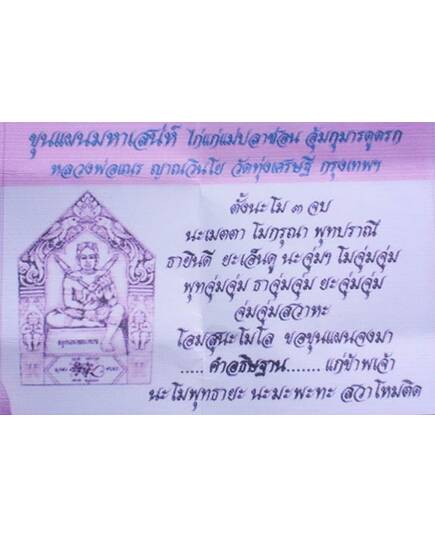 ขุนแผนมหาเสน่ห์ ไก่แก่แม่ปลาช่อน อุ้มกุมารดูดรก
หลวงพ่อแนร ญาณวินโย วัดทุ่งเศรษฐี กรุงเทพฯ
ตั้งนะโม ๓ จบ
นะเมตตา โมกรุณา พุทปราณี
ธายินดี ยะเอ็นดู นะอุ่มฯ โมอุ่มอุ่ม
พุทอุ่มอุ่ม ธาอุ่มอุ่ม ยะอุ่มอุ่ม
อุ่มอุ่มสวาหะ
โอมสุนะโมโล ขอขุนแผนจงมา
..... คำอธิษฐาน....... แก่ข้าพเจ้า
นะโมพุทธายะ นะมะพะทะ สวาโหมติด